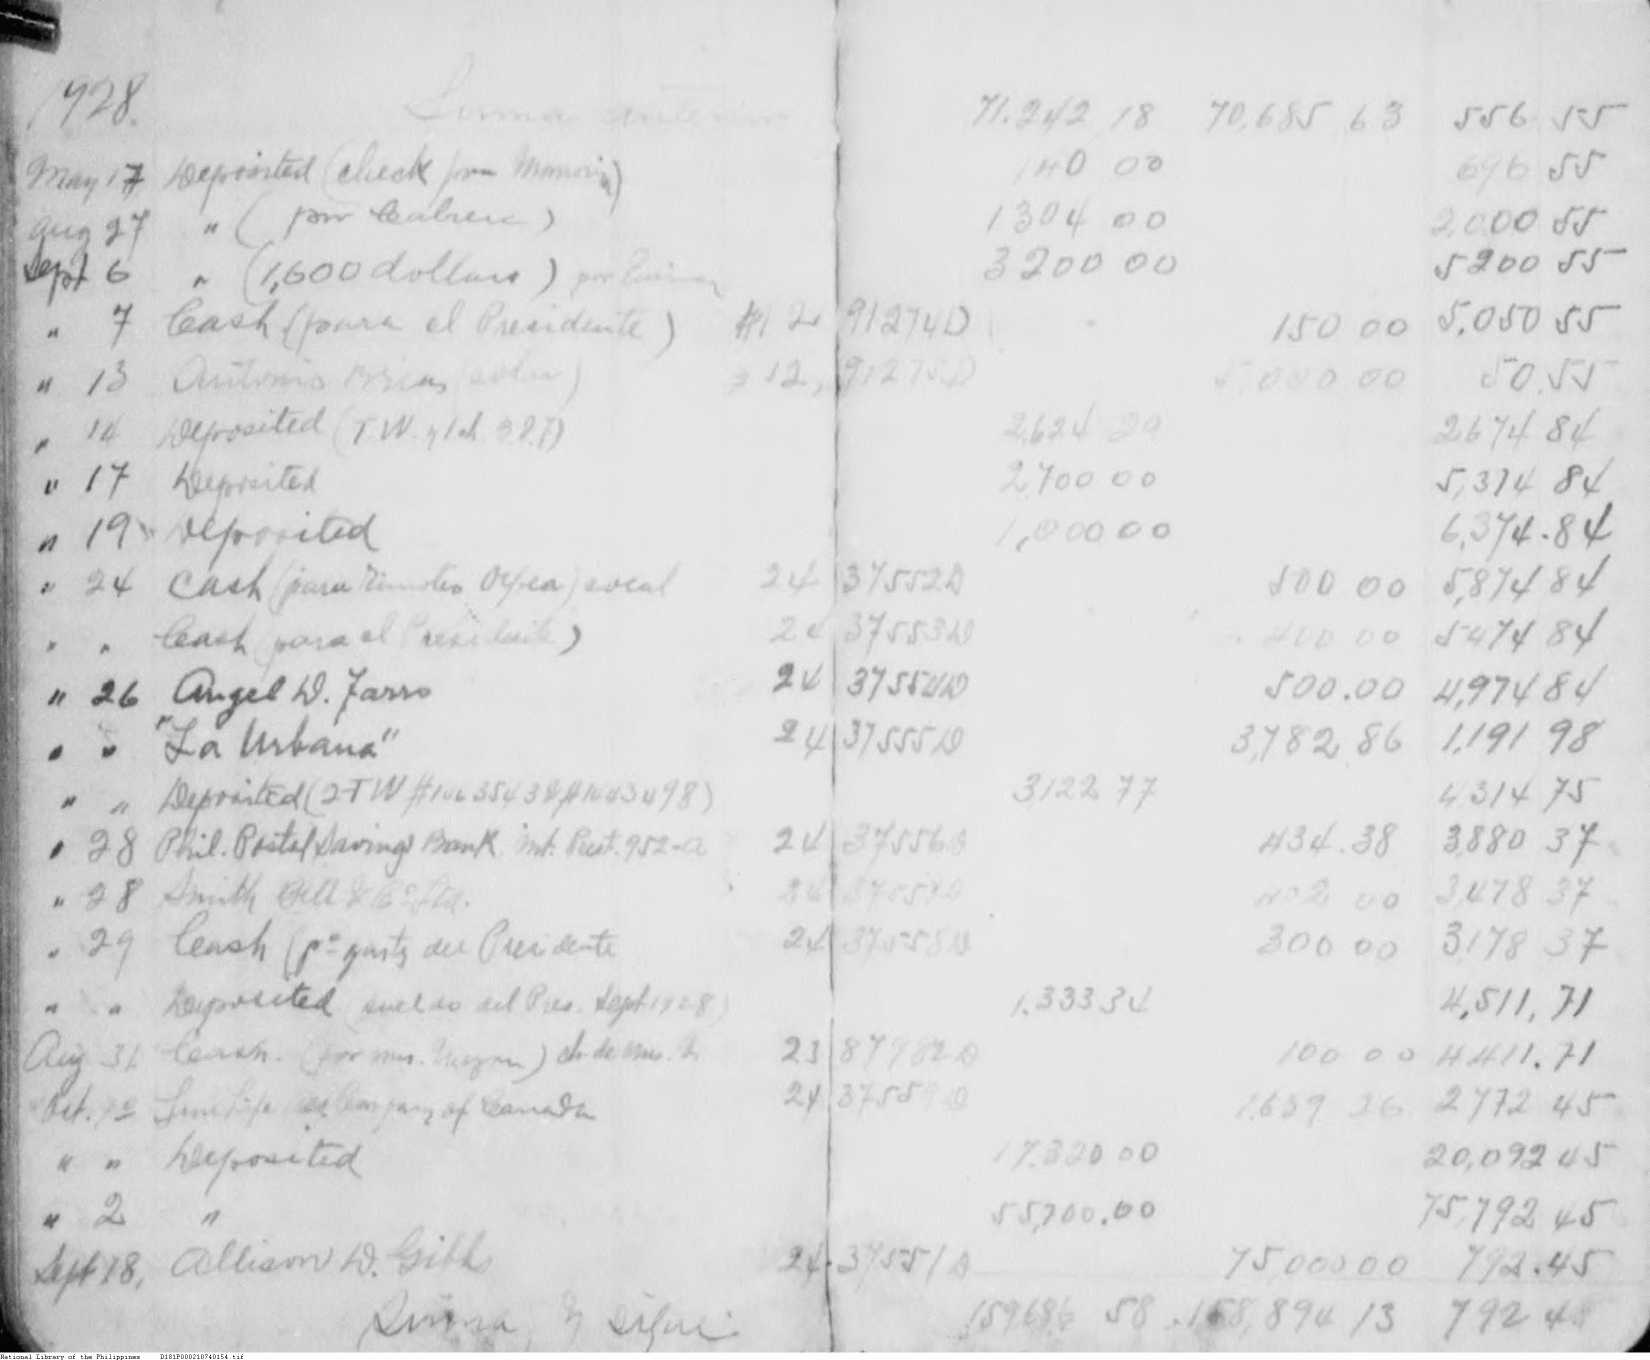 1928. Suma anterior 71.242 18 70,685 63 556 55
May 17 Deposited (check por 140 00 696 55
Aug 27 " (por Cabrera) 1304 00 2,000 55
Sept 6 " (1,600 dollars) por 3200 00 5200 55
" 7 Cash (para el Presidente) #12 91274D 150 00 5,050 55
" 13 Antonio 12, 91275D 5,000 00 50.55
" 14 Deposited (T.W. y ch. 2,624 29 2674 84
" 17 Deposited 2,700 00 5,374 84
" 19 Deposited 1,000 00 6,374.84
" 24 Cash (para 24 37552D 500 00 5,874 84
" " Cash (para el Presidente) 24 37553D 400 00 5474 84
" 26 Angel D. 24 37554D 500.00 4,974 84
" " "La Urbana" 24 37555D 3,782 86 1,191 98
" " Deposited (2 TW 3122 77 4314 75
" 28 Phil. Postal Savings Bank. Int. Prest. 952-A 24 37556D 434.38 3,880 37
" 28 Smith Bell & Co Ltd. 24 37557D 402 00 3,478 37
" 29 Cash (pa gasto del Presidente 24 37558D 300 00 3,178 37
" " Deposited (sueldo del Pres. Sept 1928) 1.333 34 4,511,71
Aug 31 Cash. (por mrs. ch de mrs. 23 87982D 100 00 4411.71
Oct. 1o Sun Life Company of Canada 24 37559D 1,639 26 2772 45
" " Deposited 17.320 00 20,092 45
" 2 " 55,700.00 75,792 45
Sept 18, Allison D. Gibbs 24 37551D 75000 00 792.45
Suma y sigue 159686 58 158,894 13 792 45
National Library of the Philippines D181P000210740154.tif